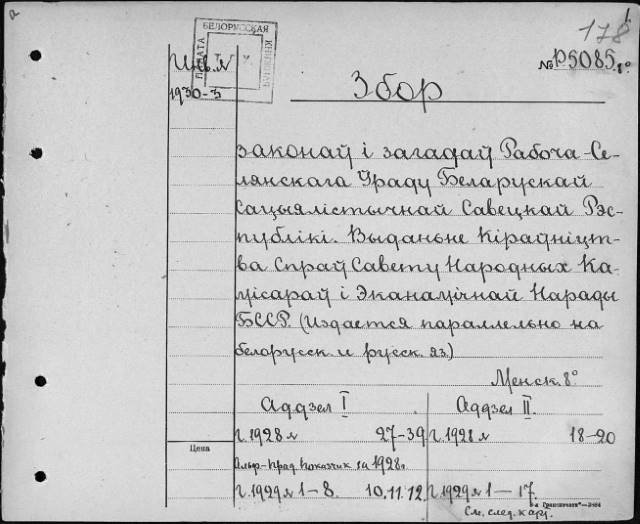 178
БЕЛОРУССКАЯ
КНИЖНАЯ
ПАЛАТА
Инв. №
1930-3
№ Р5085. 8°
Збор
законаў і загадаў Рабоча-Се-
лянскага Ўраду Беларускай
Сацыялістычнай Савецкай Рэс-
публікі. Выданьне Кіраўніцт-
ва Спраў Савету Народных Ка-
місараў і Эканамічнай Нарады
БССР. (Издается параллельно на
белорусск. и русск. яз.)
Менск. 8°
Аддзел I
Аддзел II.
г. 1928 № 27-39
г. 1928 № 18-20
Цена
Альф-прад. показчик за 1928 г.
г. 1929 № 1-8. 10.11.12.
г. 1929 № 1-17.
См. след. кар.